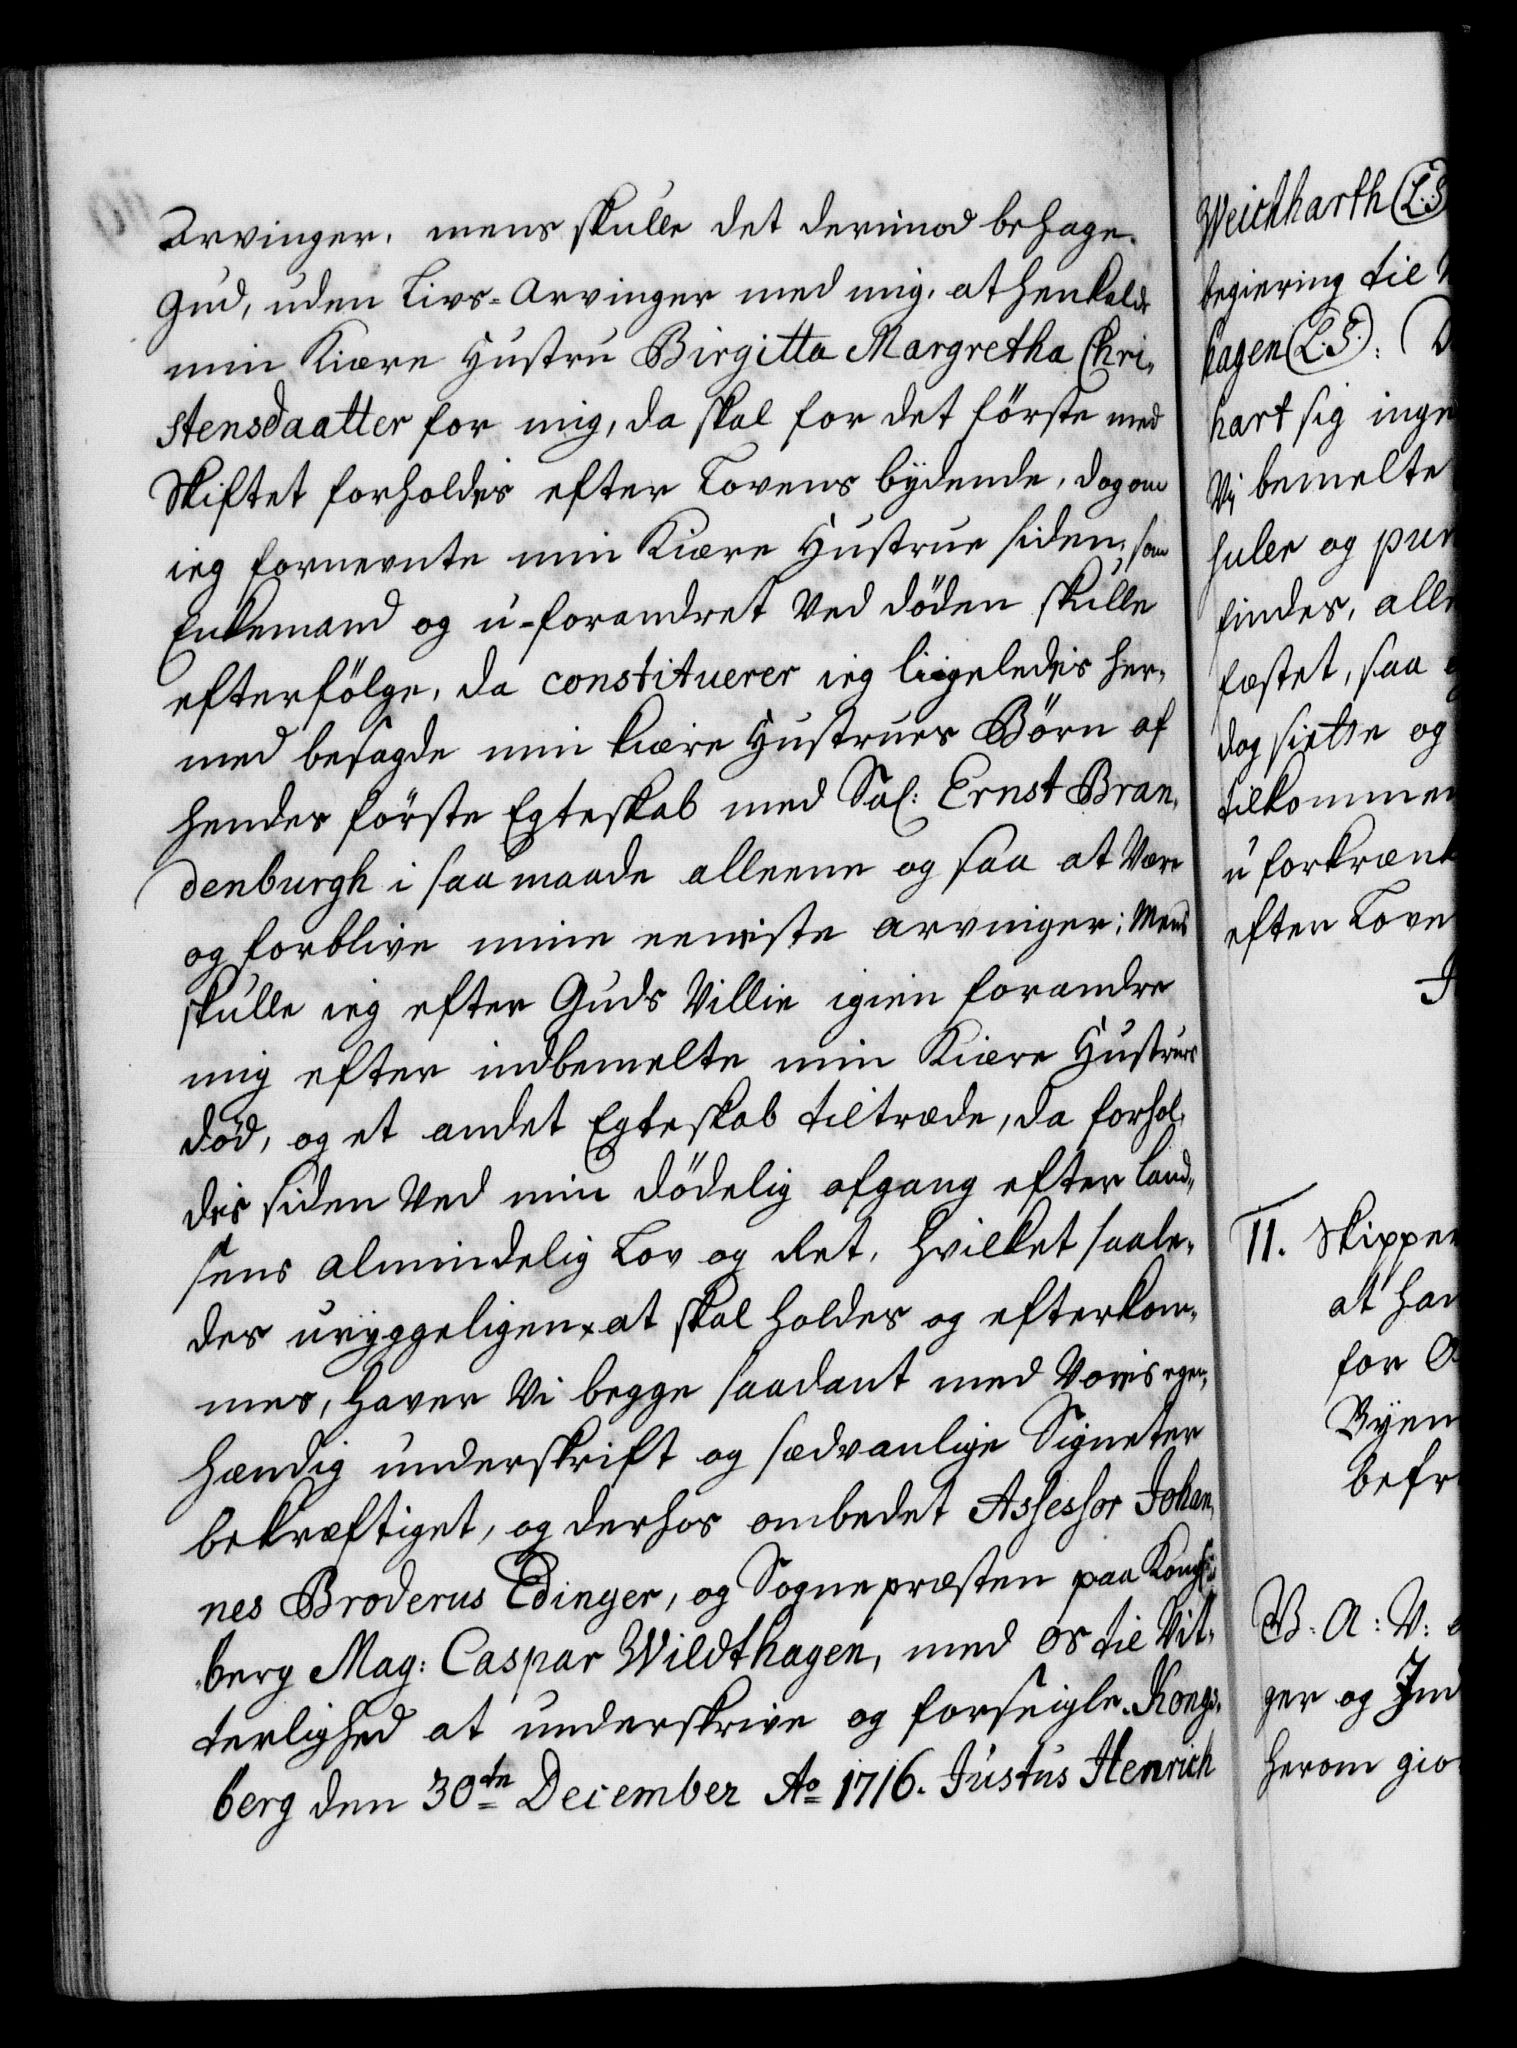 Arvinger. mens skulle det derimod behage
Gud, uden Livs-Arvinger med mig, at henkalde
min Kiære Hustru Birgitta Margretha Chri-
stensdaatter for mig, da skal for det förste med
Skiftet forholdes efter Lovens bÿdende, dog om
ieg fornevnte min Kiære Hustrue siden, som
Enkemand og u-forandret Ved döden skulle
efterfölge, da constituerer ieg ligeledis her-
med besagde min kiære Hustrues Börn af
hendes förste Egteskab med Sal: Ernst Bran-
denburgh i saa maade alleene og saa at Være
og forblive mine eeniste arvinger; Mens
skulle ieg efter Guds Villie igien forandre
mig efter indbemelte min Kiære Hustrues
död, og et andet Egteskab tiltræde, da forhol-
dis siden Ved min dödelig afgang efter Land-
sens almindelig Lov og Ret. Hvilket saale-
des uryggeligen at skal holdes og efterkom-
mes, haver Vi begge saadant med Voris egen-
hændig underskrift og sædvanlige Signeter
bekræftiget, og derhos ombedet Assessor Johan-
nes Broderus Edinger, og Sognepræsten paa Kongs-
berg Mag: Caspar Wildthagen, med os til Vit-
terlighed at underskrive og forseigle. Kongs-
berg den 30te December Ao 1716. Justus Henrich
Weichharth (L.S
begiering til
hagen (L.S.):
hart sig inge
Vj bemelte
huler og pun
findes, alle
fæstet, saa
dog sielse og
tilkommen
u forkrænk
efter Love
11. Skipper
at han
for
Bÿen
befr
W. A: V:
ger og Ind
herom gio